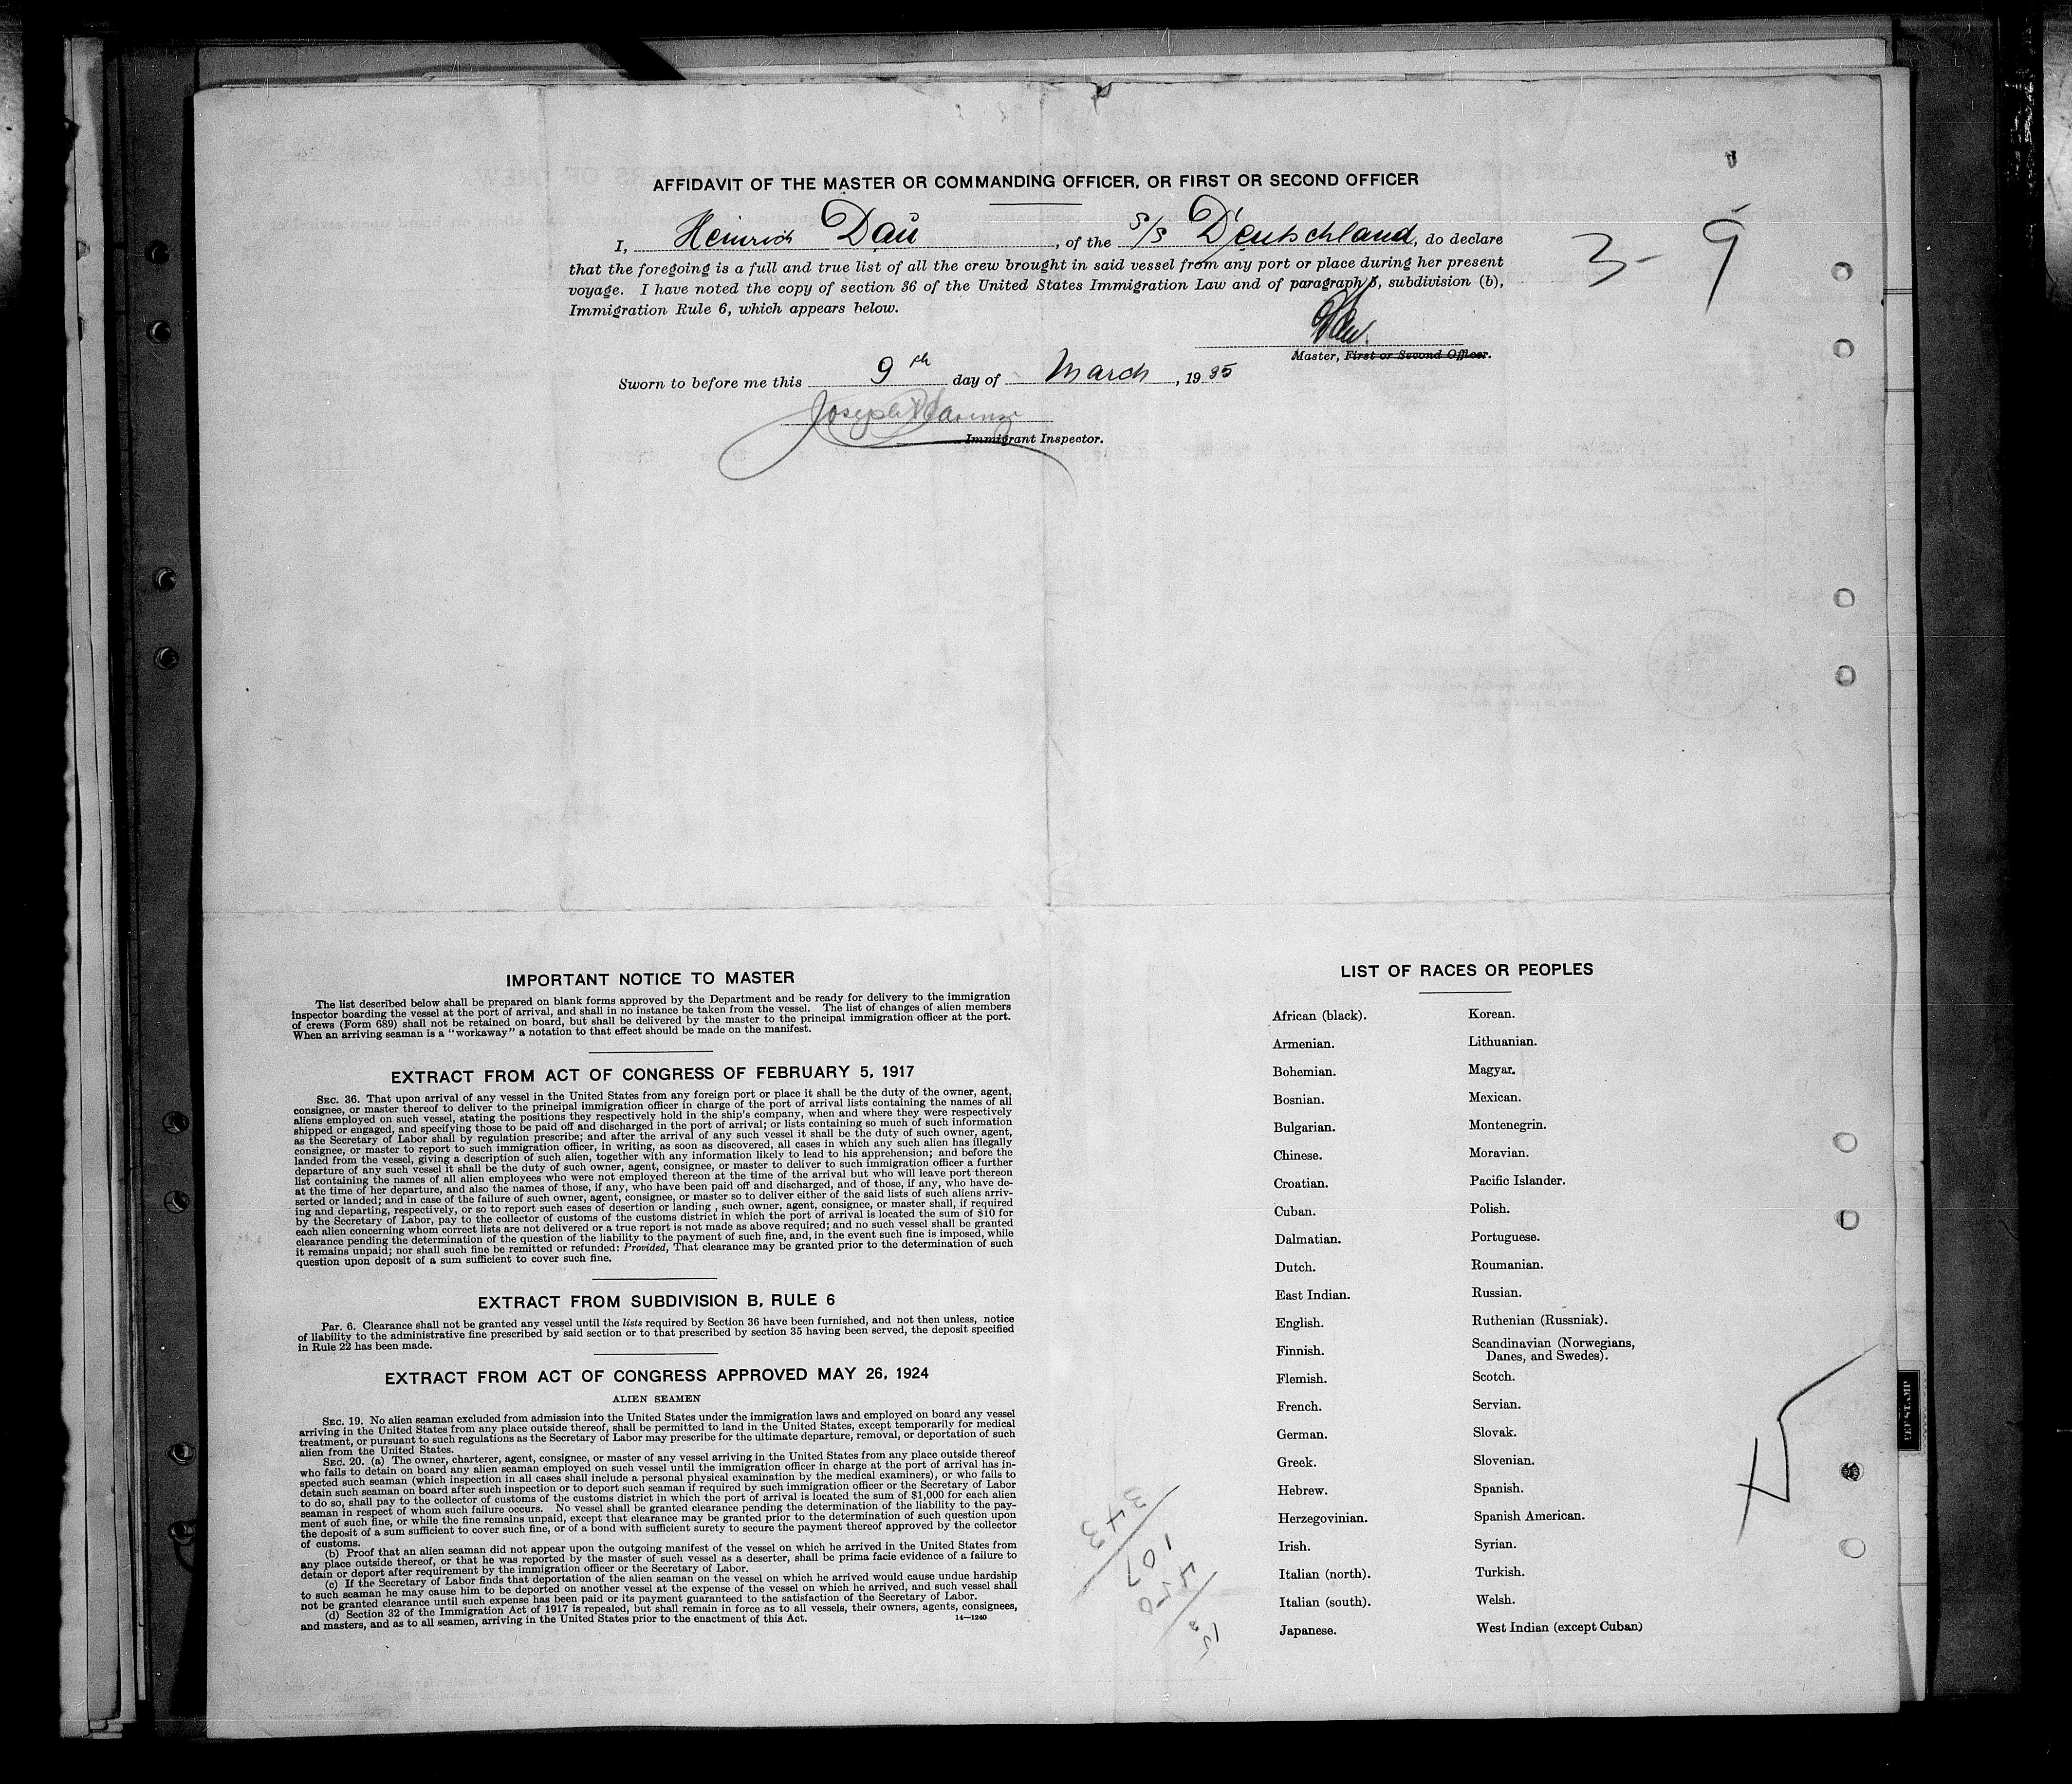 AFFIDAVIT OF THE MASTER OR COMMANDING OFFICER, OR FIRST OR SECOND OFFICER
I, Heinrich Daü, of the S/S Deutschland, do declare
that the foregoing is a full and true list of all the crew brought in said vessel from any port or place during her present
voyage. I have noted the copy of section 36 of the United States Immigration Law and of paragraph 5, subdivision (b),
Immigration Rule 6, which appears below.
3 - 9
Master, First or Second Officer.
Sworn to before me this 9th day of March, 1935
Joseph
Immigrant Inspector.
IMPORTANT NOTICE TO MASTER
The list described below shall be prepared on blank forms approved by the Department and be ready for delivery to the immigration
inspector boarding the vessel at the port of arrival, and shall in no instance be taken from the vessel. The list of changes of alien members
of crews (Form 689) shall not be retained on board, but shall be delivered by the master to the principal immigration officer at the port.
When an arriving seaman is a "workaway" a notation to that effect should be made on the manifest.
EXTRACT FROM ACT OF CONGRESS OF FEBRUARY 5, 1917
SEC. 36. That upon arrival of any vessel in the United States from any foreign port or place it shall be the duty of the owner, agent,
consignee, or master thereof to deliver to the principal immigration officer in charge of the port of arrival lists containing the names of all
aliens employed on such vessel, stating the positions they respectively hold in the ship's company, when and where they were respectively
shipped or engaged, and specifying those to be paid off and discharged in the port of arrival; or lists containing so much of such information
as the Secretary of Labor shall by regulation prescribe; and after the arrival of any such vessel it shall be the duty of such owner, agent,
consignee, or master to report to such immigration officer, in writing, as soon as discovered, all cases in which any such alien has illegally
landed from the vessel, giving a description of such alien, together with any information likely to lead to his apprehension; and before the
departure of any such vessel it shall be the duty of such owner, agent, consignee, or master to deliver to such immigration officer a further
list containing the names of all alien employees who were not employed thereon at the time of the arrival but who will leave port thereon
at the time of her departure, and also the names of those, if any, who have been paid off and discharged, and of those, if any, who have de-
serted or landed; and in case of the failure of such owner, agent, consignee, or master so to deliver either of the said lists of such aliens arriv-
ing and departing, respectively, or so to report such cases of desertion or landing , such owner, agent, consignee, or master shall, if required
by the Secretary of Labor, pay to the collector of customs of the customs district in which the port of arrival is located the sum of $10 for
each alien concerning whom correct lists are not delivered or a true report is not made as above required; and no such vessel shall be granted
clearance pending the determination of the question of the liability to the payment of such fine, and, in the event such fine is imposed, while
it remains unpaid; nor shall such fine be remitted or refunded: Provided, That clearance may be granted prior to the determination of such
question upon deposit of a sum sufficient to cover such fine.
EXTRACT FROM SUBDIVISION B, RULE 6
Par. 6. Clearance shall not be granted any vessel until the lists required by Section 36 have been furnished, and not then unless, notice
of liability to the administrative fine prescribed by said section or to that prescribed by section 35 having been served, the deposit specified
in Rule 22 has been made.
EXTRACT FROM ACT OF CONGRESS APPROVED MAY 26, 1924
ALIEN SEAMEN
SEC. 19. No alien seaman excluded from admission into the United States under the immigration laws and employed on board any vessel
arriving in the United States from any place outside thereof, shall be permitted to land in the United States, except temporarily for medical
treatment, or pursuant to such regulations as the Secretary of Labor may prescribe for the ultimate departure, removal, or deportation of such
alien from the United States.
SEC. 20. (a) The owner, charterer, agent, consignee, or master of any vessel arriving in the United States from any place outside thereof
who fails to detain on board any alien seaman employed on such vessel until the immigration officer in charge at the port of arrival has in-
spected such seaman (which inspection in all cases shall include a personal physical examination by the medical examiners), or who fails to
detain such seaman on board after such inspection or to deport such seaman if required by such immigration officer or the Secretary of Labor
to do so, shall pay to the collector of customs of the customs district in which the port of arrival is located the sum of $1,000 for each alien
seaman in respect of whom such failure occurs. No vessel shall be granted clearance pending the determination of the liability to the pay-
ment of such fine, or while the fine remains unpaid, except that clearance may be granted prior to the determination of such question upon
the deposit of a sum sufficient to cover such fine, or of a bond with sufficient surety to secure the payment thereof approved by the collector
of customs.
(b) Proof that an alien seaman did not appear upon the outgoing manifest of the vessel on which he arrived in the United States from
any place outside thereof, or that he was reported by the master of such vessel as a deserter, shall be prima facie evidence of a failure to
detain or deport after requirement by the immigration officer or the Secretary of Labor.
(c) If the Secretary of Labor finds that deportation of the alien seaman on the vessel on which he arrived would cause undue hardship
to such seaman he may cause him to be deported on another vessel at the expense of the vessel on which he arrived, and such vessel shall
not be granted clearance until such expense has been paid or its payment guaranteed to the satisfaction of the Secretary of Labor.
(d) Section 32 of the Immigration Act of 1917 is repealed, but shall remain in force as to all vessels, their owners, agents, consignees,
and masters, and as to all seamen, arriving in the United States prior to the enactment of this Act.
14—1240
LIST OF RACES OR PEOPLES
African (black).
Armenian.
Bohemian.
Bosnian.
Bulgarian.
Chinese.
Croatian.
Cuban.
Dalmatian.
Dutch.
East Indian.
English.
Finnish.
Flemish.
French.
German.
Greek.
Hebrew.
Herzegovinian.
Irish.
Italian (north).
Italian (south).
Japanese.
Korean.
Lithuanian.
Magyar.
Mexican.
Montenegrin.
Moravian.
Pacific Islander.
Polish.
Portuguese.
Roumanian.
Russian.
Ruthenian (Russniak).
Scandinavian (Norwegians,
Danes, and Swedes).
Scotch.
Servian.
Slovak.
Slovenian.
Spanish.
Spanish American.
Syrian.
Turkish.
Welsh.
West Indian (except Cuban)